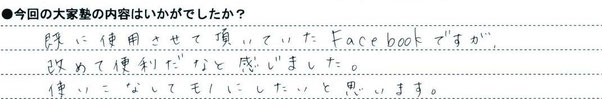 ●今回の大家塾の内容はいかがでしたか？
既に使用させて頂いていたFacebookですが、
改めて便利だなと感じました。
使いこなしてモノにしたいと思います。